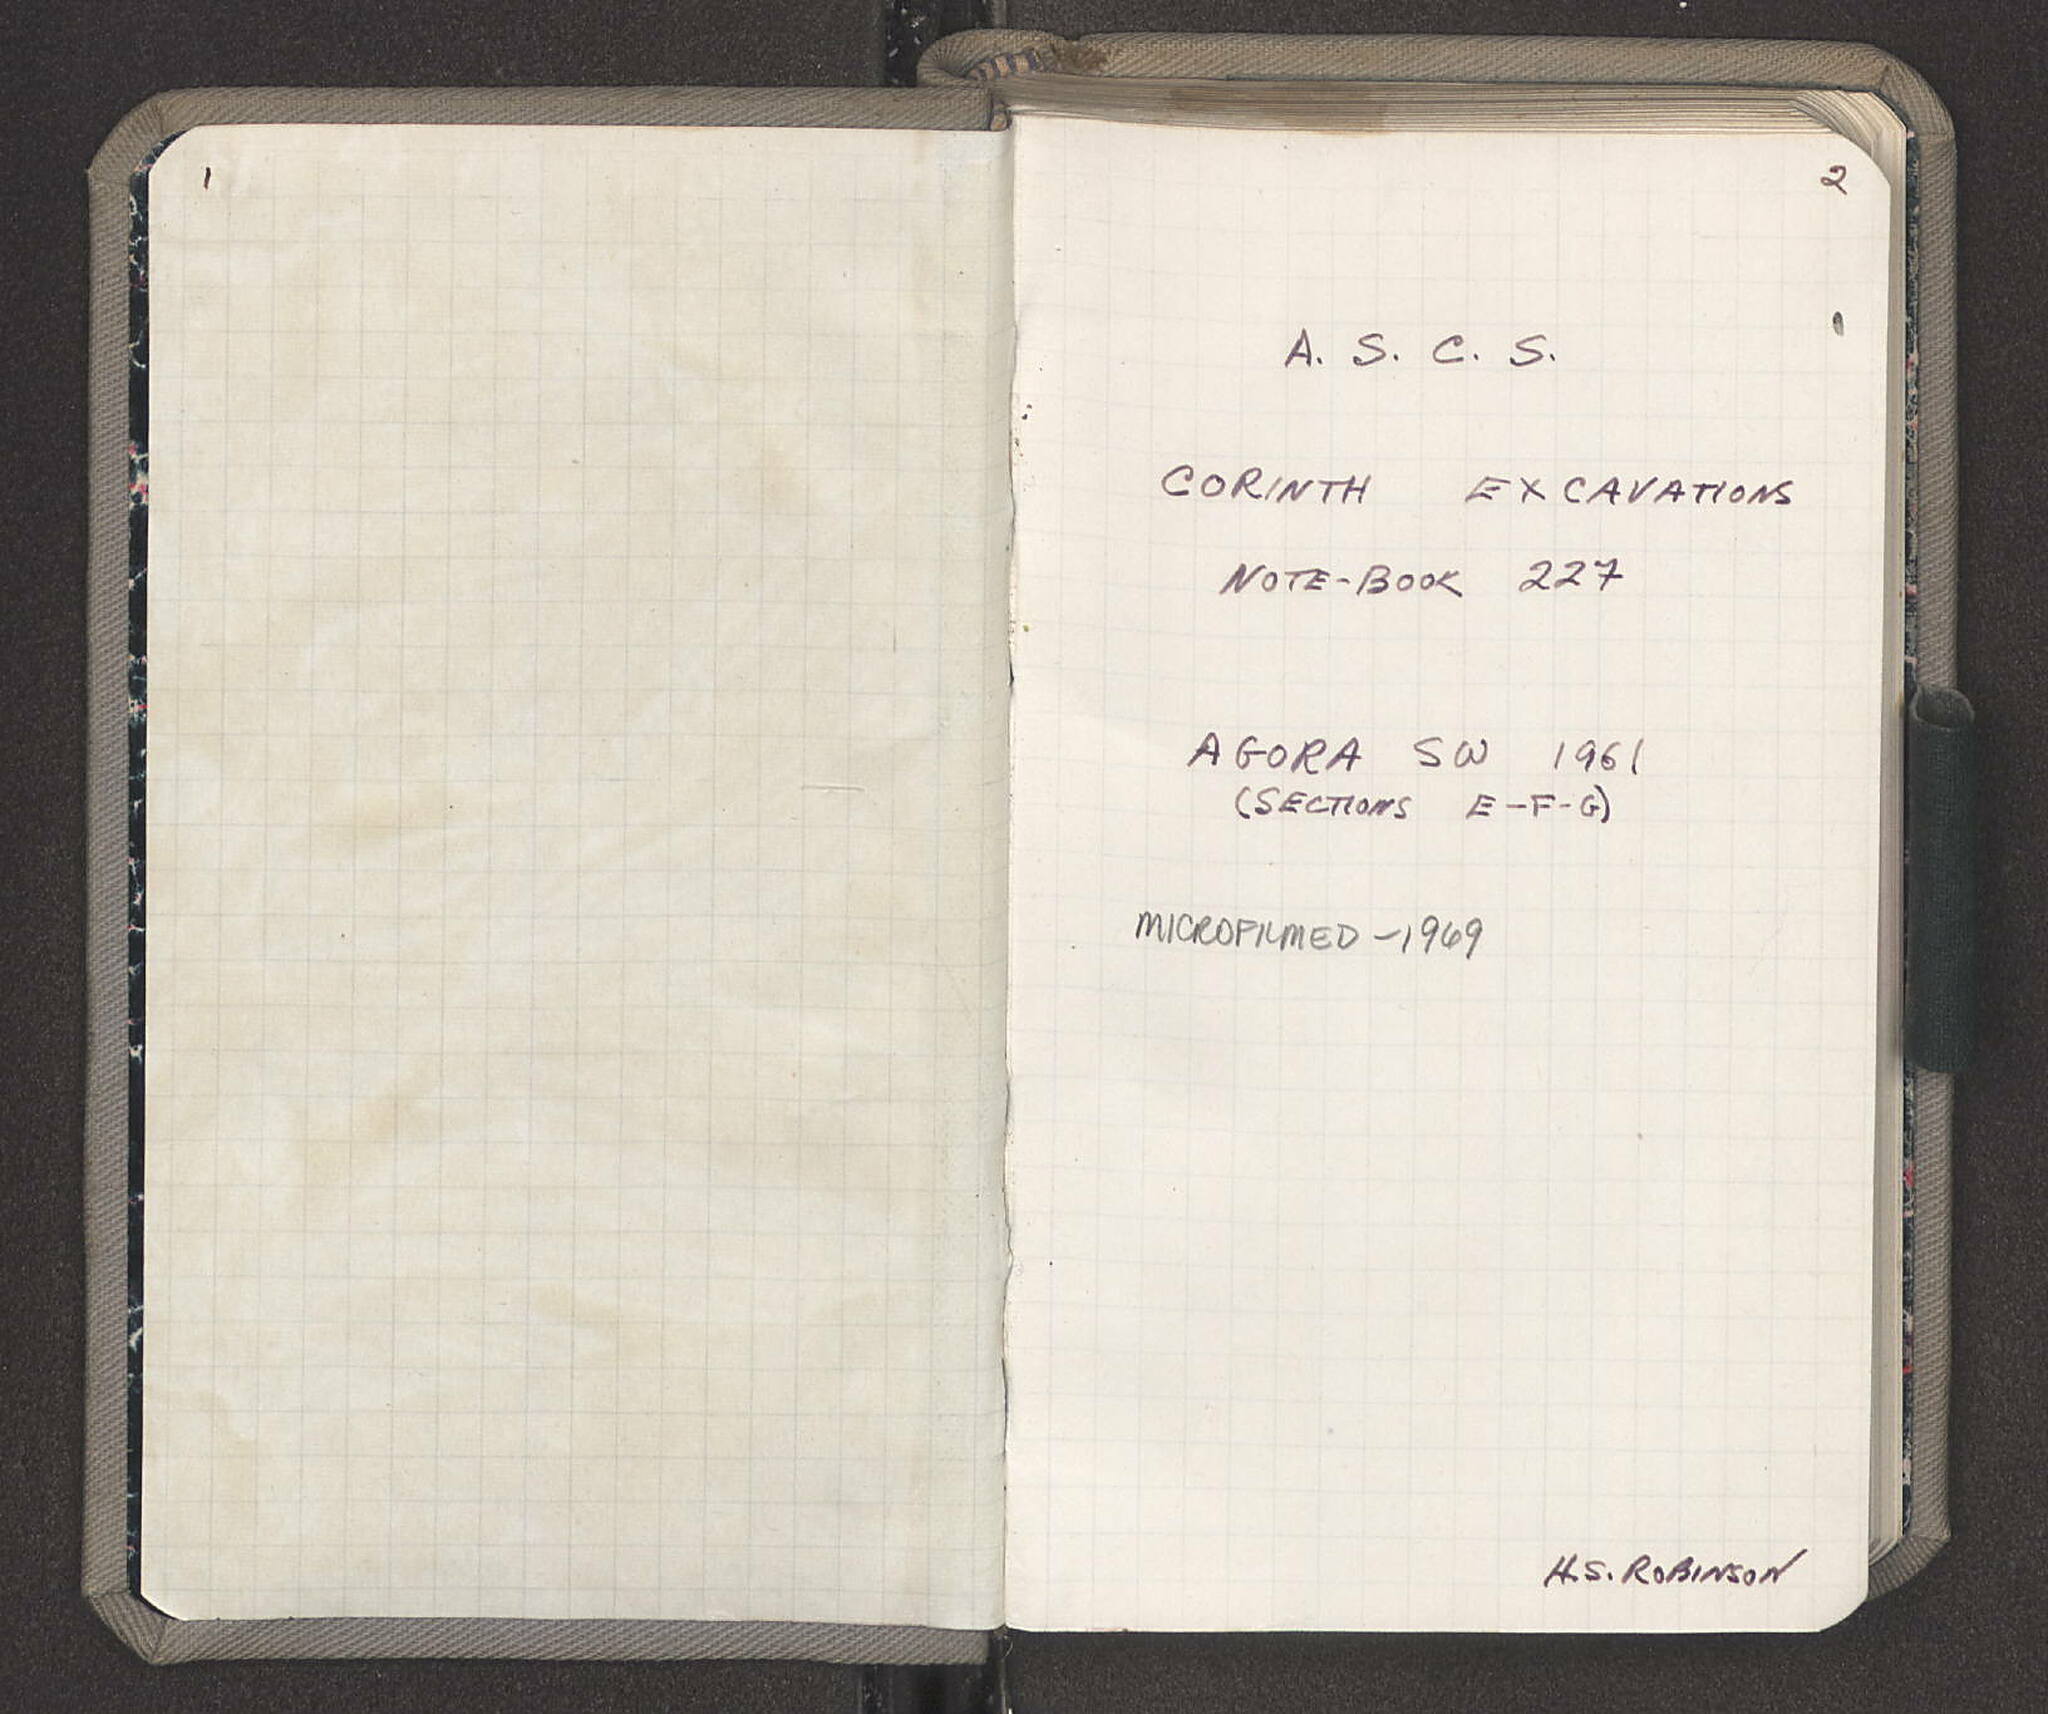 1
2
A. S. C. S.
CORINTH EXCAVATIONS
NOTE-BOOK 227
AGORA SW 1961
(SECTIONS E-F-G)
MICROFILMED - 1969
H.S. ROBINSON